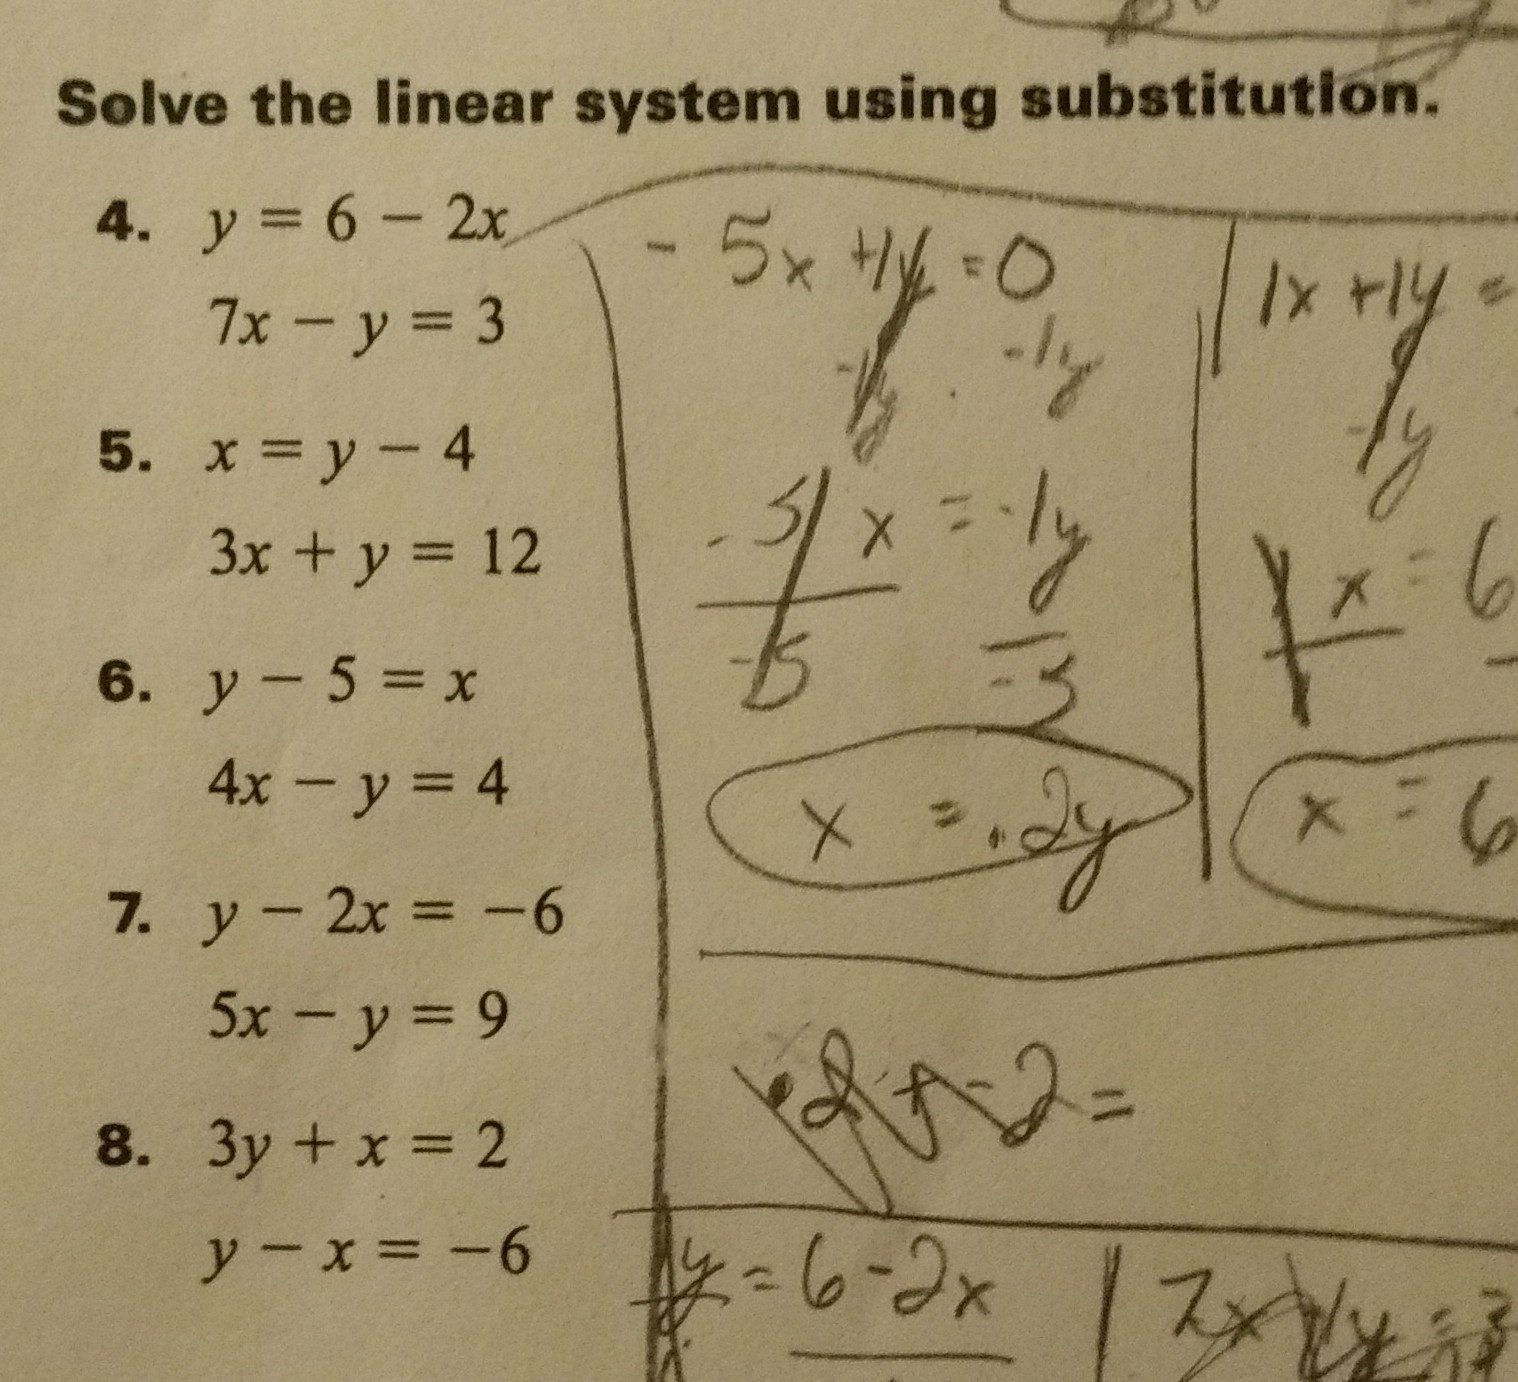 Solve the linear system using substitution.
4. y = 6 − 2x
7x − y = 3
5. x = y − 4
3x + y = 12
6. y − 5 = x
4x − y = 4
7. y − 2x = −6
5x − y = 9
8. 3y + x = 2
y − x = −6
- 5x +1y = 0
-1y -1y
-5 x = -1y
-5 -5
x = .2y
1x +1y =
-1y
1 x = 6
1
x = 6
y = 6 - 2x
7x